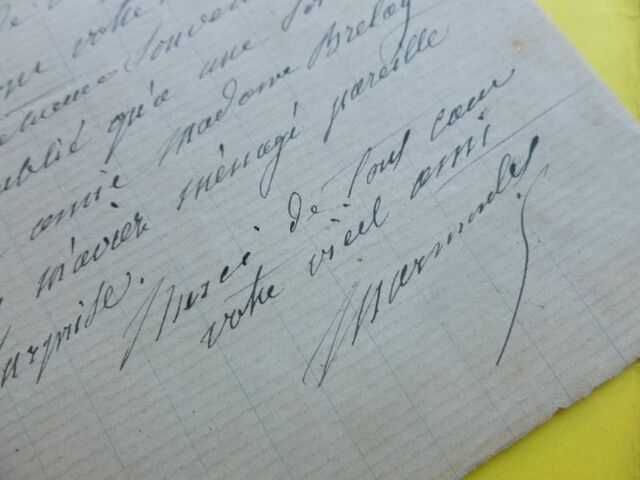 votre
souven
ublié qu'a une
amie Madame Brelay
m'aviez ménagé pareille
surprise.
Merci de tout cœur
votre vieil ami